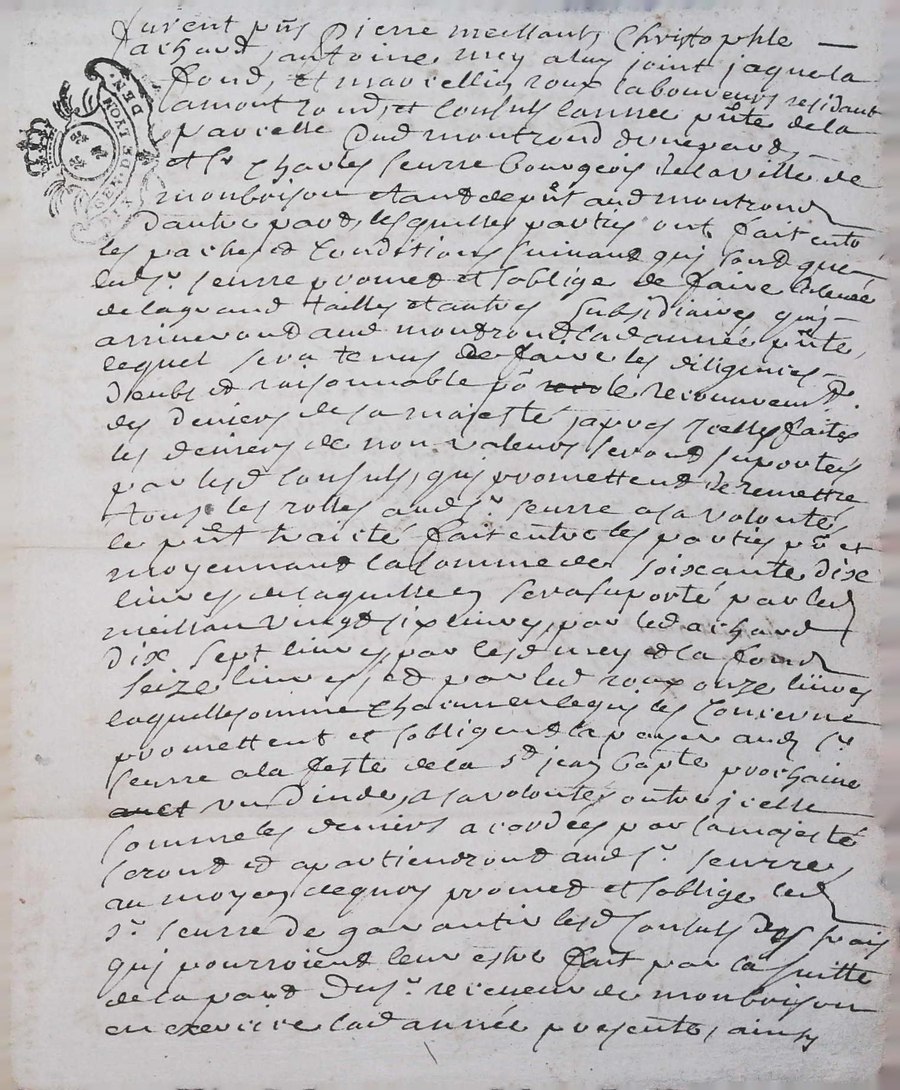 GEN. DE LYON
furent pñs pierre meillant, Christophle
achard, antoine mey a luy joint jaque la
fond, et marcellin roux laboureurs residant
a montrond, et Consuls lannee pñte de la
parcelle dud montrond dune part,
et sr Charles seurre bourgeois de la ville de
monbrison etant de pñt aud montrond
dautre part, lesquelles parties ont fait entre
les paches et Conditions suivant qui sond que
led sr seurre promet et soblige de faire la levée
de la grand tailles et autres subsidiaires qui
arriveront aud montrond lad année pñte,
lequel sera tenus de faire les diligences
deubs et raisonnable pr le recouvremt
des deniers de sa majesté, apres icelles faites
les deniers de non valeurs seront suportés
par lesd Consuls, qui promettent de remettre
tous les rolles aud sr seurre a sa volonté,
le pñt traité fait entre les parties pr et
moyennant la somme de soixante dix
livres, de laquelle en sera suporté par led
meillan vingt six livres, par led achard
dix sept livres, par lesd mey et la fond
seize livres, et par led roux onze livres
laquelle somme chacun en ce qui les Concerne
promettent et sobligent la payer aud sr
seurre a la feste de la st jean bapte prochaine
avec un dinde, a sa volonté, outre icelle
somme les deniers acordées par sa majesté
seront et apartiendront aud sr seurre,
au moyen de quoy promet et soblige led
sr seurre de garantir lesd Consuls des frais
qui pourroient leur estre fait par la suitte
de la part du sr receveur de monbrison
en exercice lad année presente, ainsy